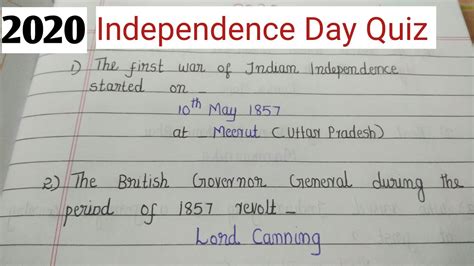 2020 Independence Day Quiz
1) The first war of Indian Independence
started on -
10th May 1857
at - Meerut (Uttar Pradesh)
2) The British Governor General during the
period of 1857 revolt -
Lord Canning